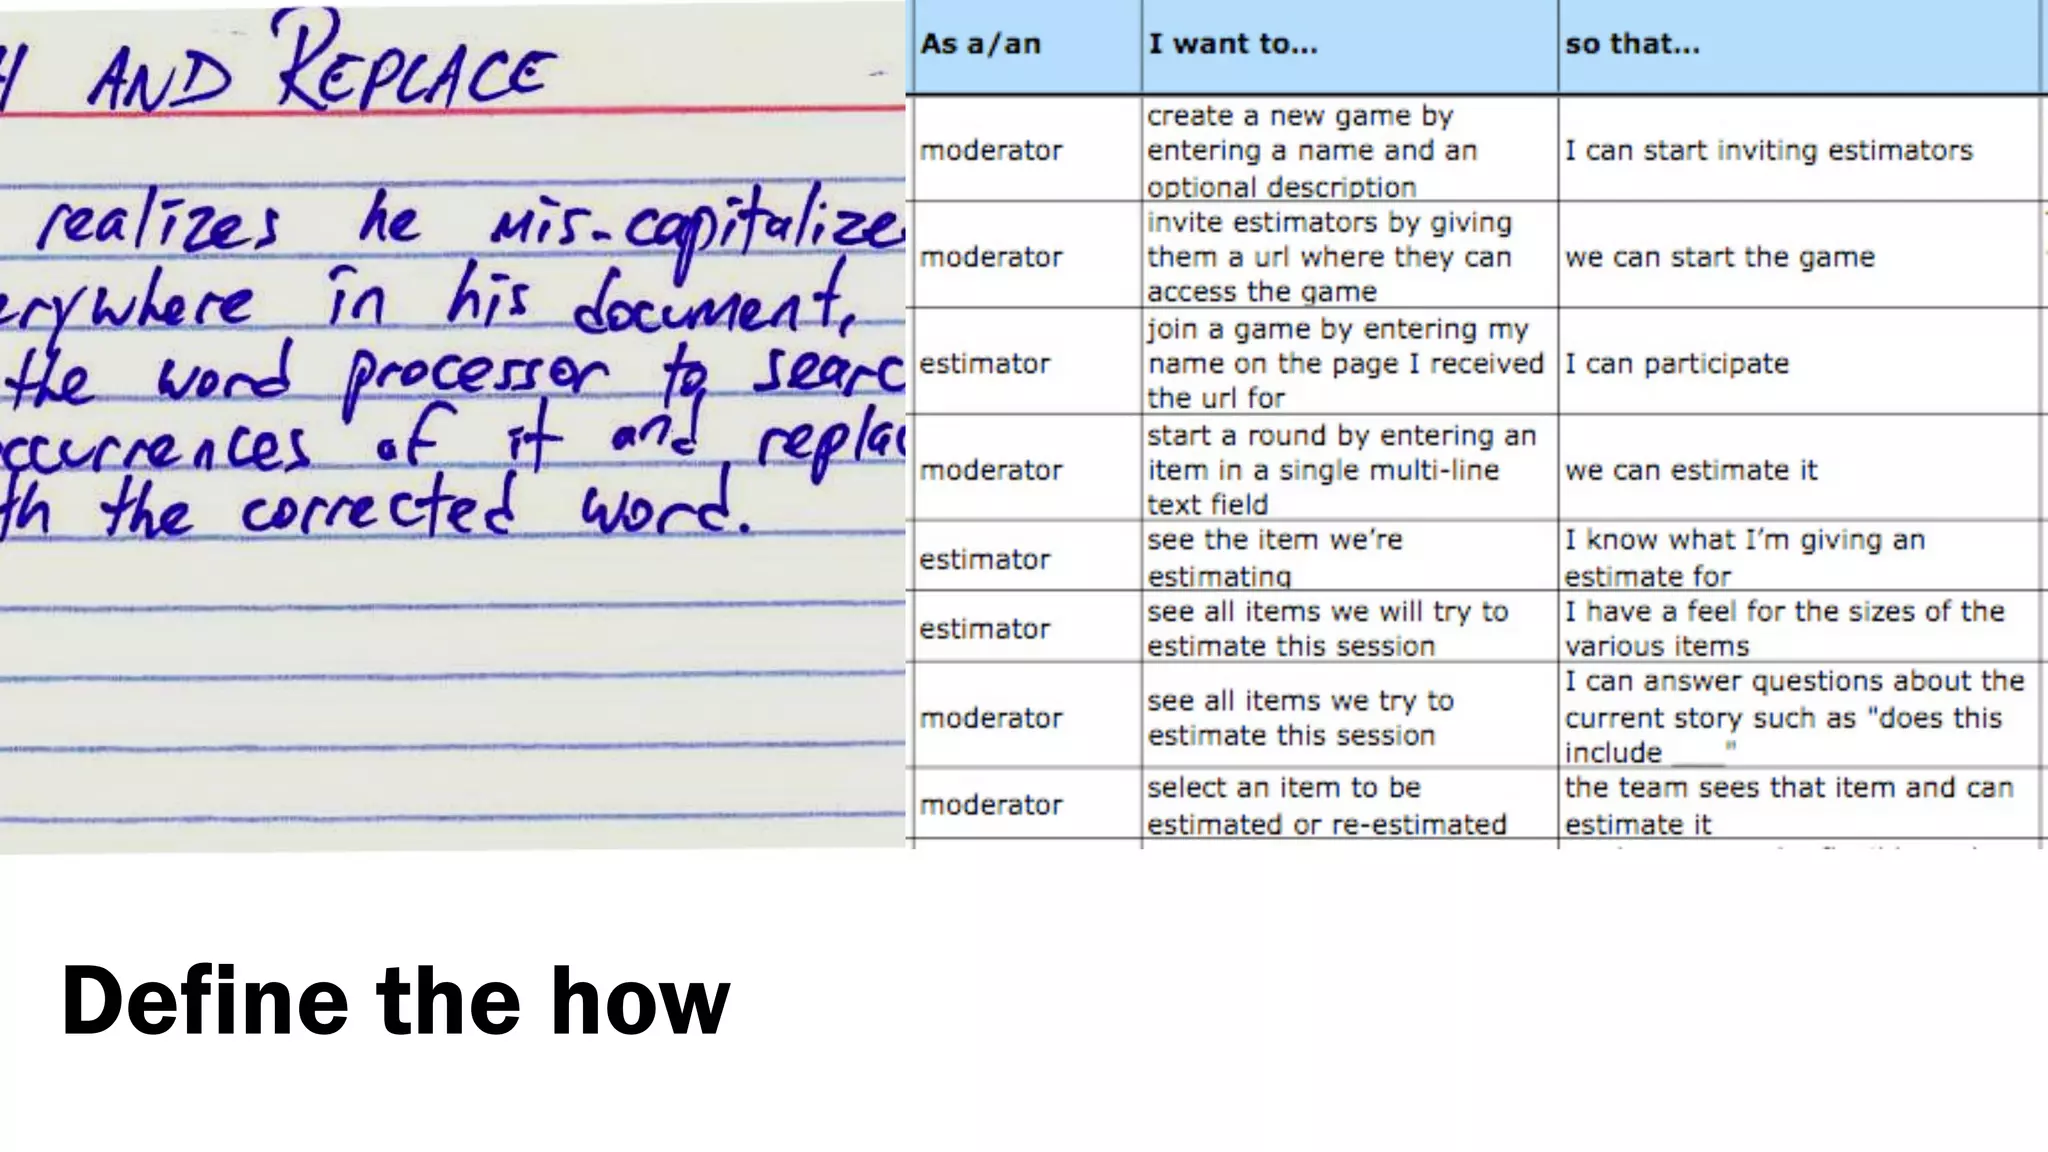 AND REPLACE
realizes he mis-capitalize
in his document,
the word processor to
of it and
the corrected word.
As a/an I want to... so that...
moderator
create a new game by
entering a name and an
optional description
I can start inviting estimators
moderator
invite estimators by giving
them a url where they can
access the game
we can start the game
estimator
join a game by entering my
name on the page I received
the url for
I can participate
moderator
start a round by entering an
item in a single multi-line
text field
we can estimate it
estimator
see the item we’re
estimating
I know what I’m giving an
estimate for
estimator
see all items we will try to
estimate this session
I have a feel for the sizes of the
various items
moderator
see all items we try to
estimate this session
I can answer questions about the
current story such as "does this
include ____"
moderator
select an item to be
estimated or re-estimated
the team sees that item and can
estimate it
Define the how